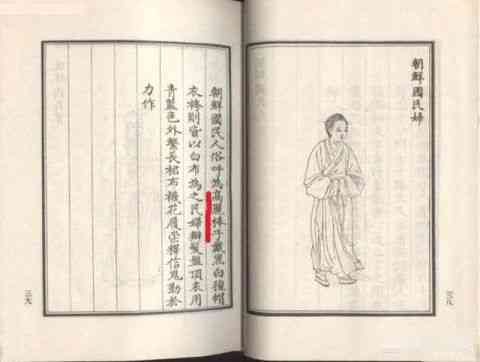 朝鮮國民婦
三八
朝鮮國民人俗呼為高麗棒子戴黑白氊帽
衣褲則皆以白布為之民婦辮髮盤頂衣用
青藍色外繫長裙布襪花履崇釋信鬼勤於
力作
三九